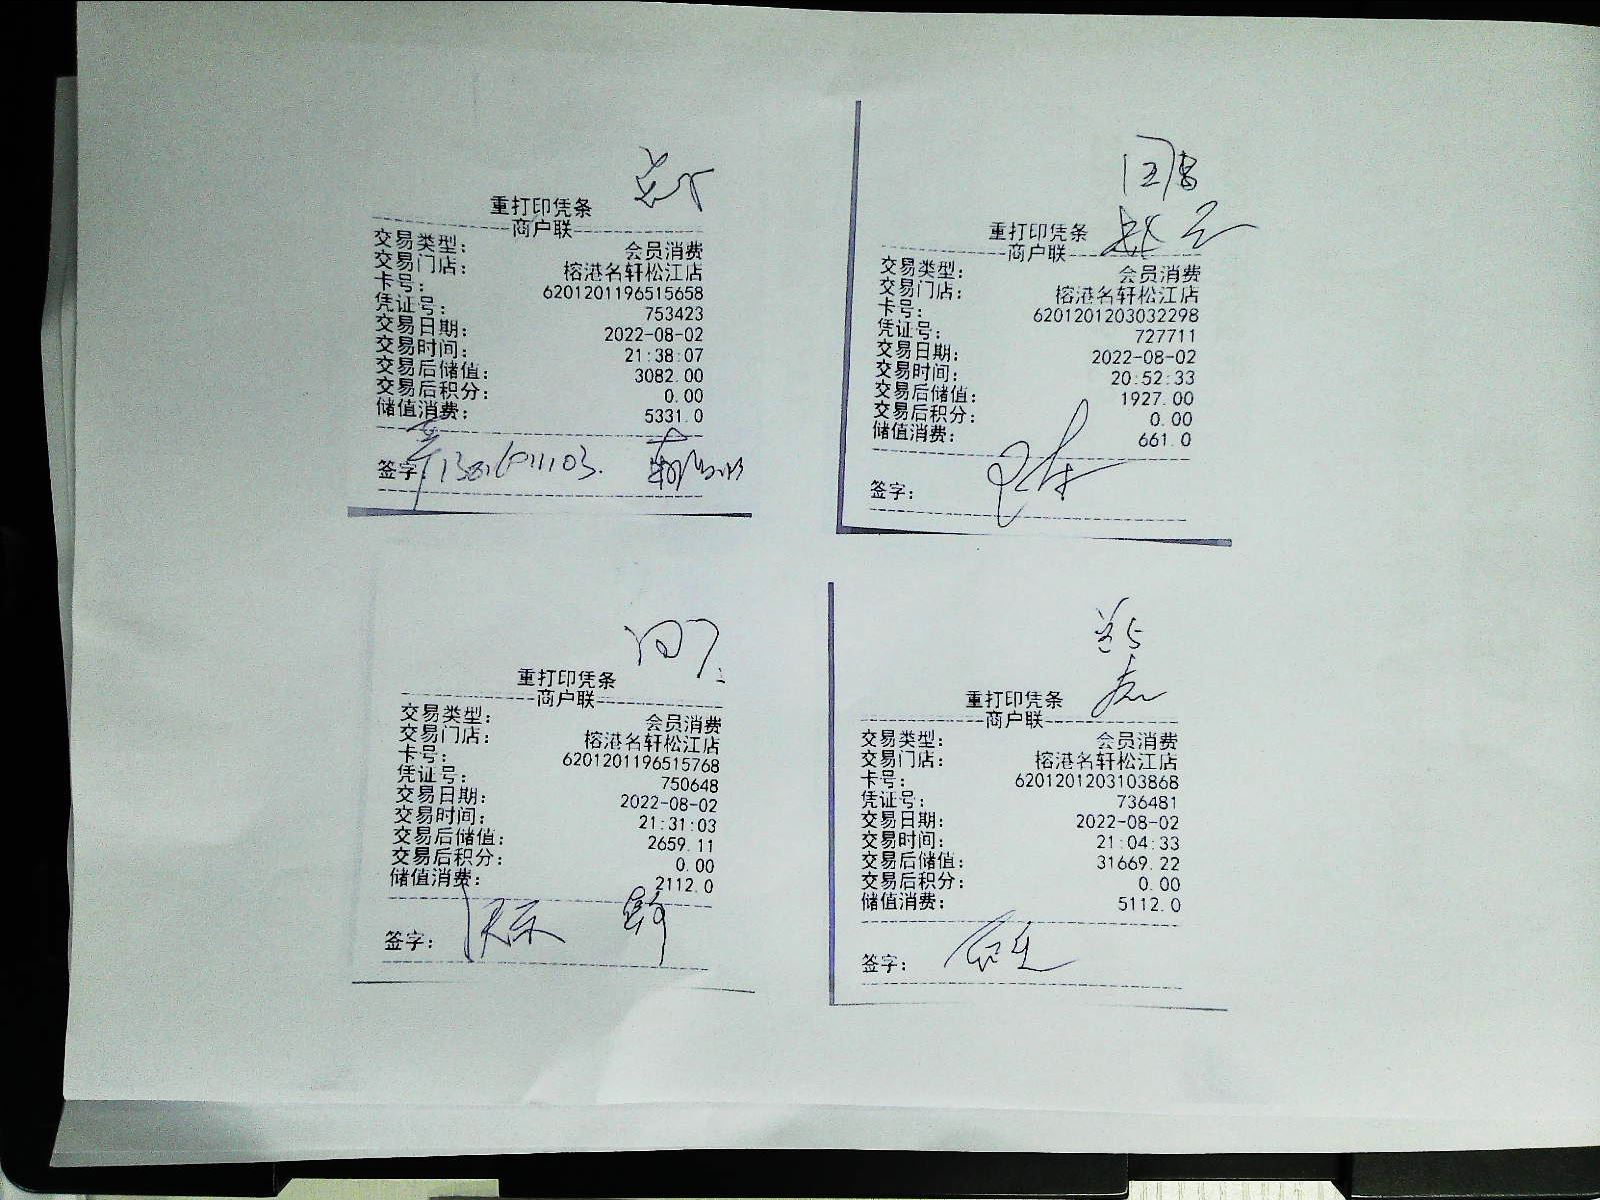 重打印凭条
商户联
交易类型: 会员消费
交易门店: 榕港名轩松江店
卡号: 6201201196515658
凭证号: 753423
交易日期: 2022-08-02
交易时间: 21:38:07
交易后储值: 3082.00
交易后积分: 0.00
储值消费: 5331.0
签字:
重打印凭条
商户联
交易类型: 会员消费
交易门店: 榕港名轩松江店
卡号: 6201201203032298
凭证号: 727711
交易日期: 2022-08-02
交易时间: 20:52:33
交易后储值: 1927.00
交易后积分: 0.00
储值消费: 661.0
签字:
重打印凭条
商户联
交易类型: 会员消费
交易门店: 榕港名轩松江店
卡号: 6201201196515768
凭证号: 750648
交易日期: 2022-08-02
交易时间: 21:31:03
交易后储值: 2659.11
交易后积分: 0.00
储值消费: 2112.0
签字:
重打印凭条
商户联
交易类型: 会员消费
交易门店: 榕港名轩松江店
卡号: 6201201203103868
凭证号: 736481
交易日期: 2022-08-02
交易时间: 21:04:33
交易后储值: 31669.22
交易后积分: 0.00
储值消费: 5112.0
签字: